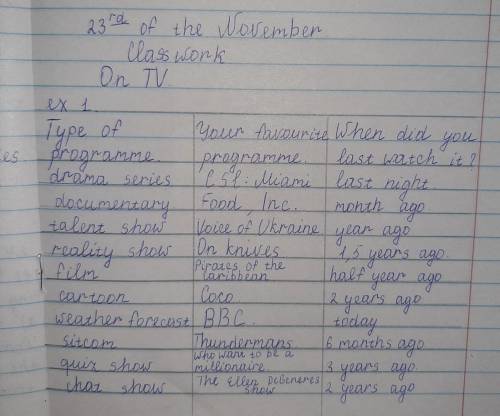 23rd of the November
Classwork
On TV.
ex 1.
Type of programme. Your favourite programme. When did you last watch it?
drama series CSI: Miami last night
documentary Food, Inc. month ago
talent show Voice of Ukraine year ago
reality show On knives 1,5 years ago.
film Pirates of the caribbean half year ago
cartoon Coco 2 years ago
weather forecast BBC. today
sitcom Thundermans 6 months ago
quiz show who want to be a millionaire 3 years ago.
chat show The Ellen DeGeneres show 2 years ago
es